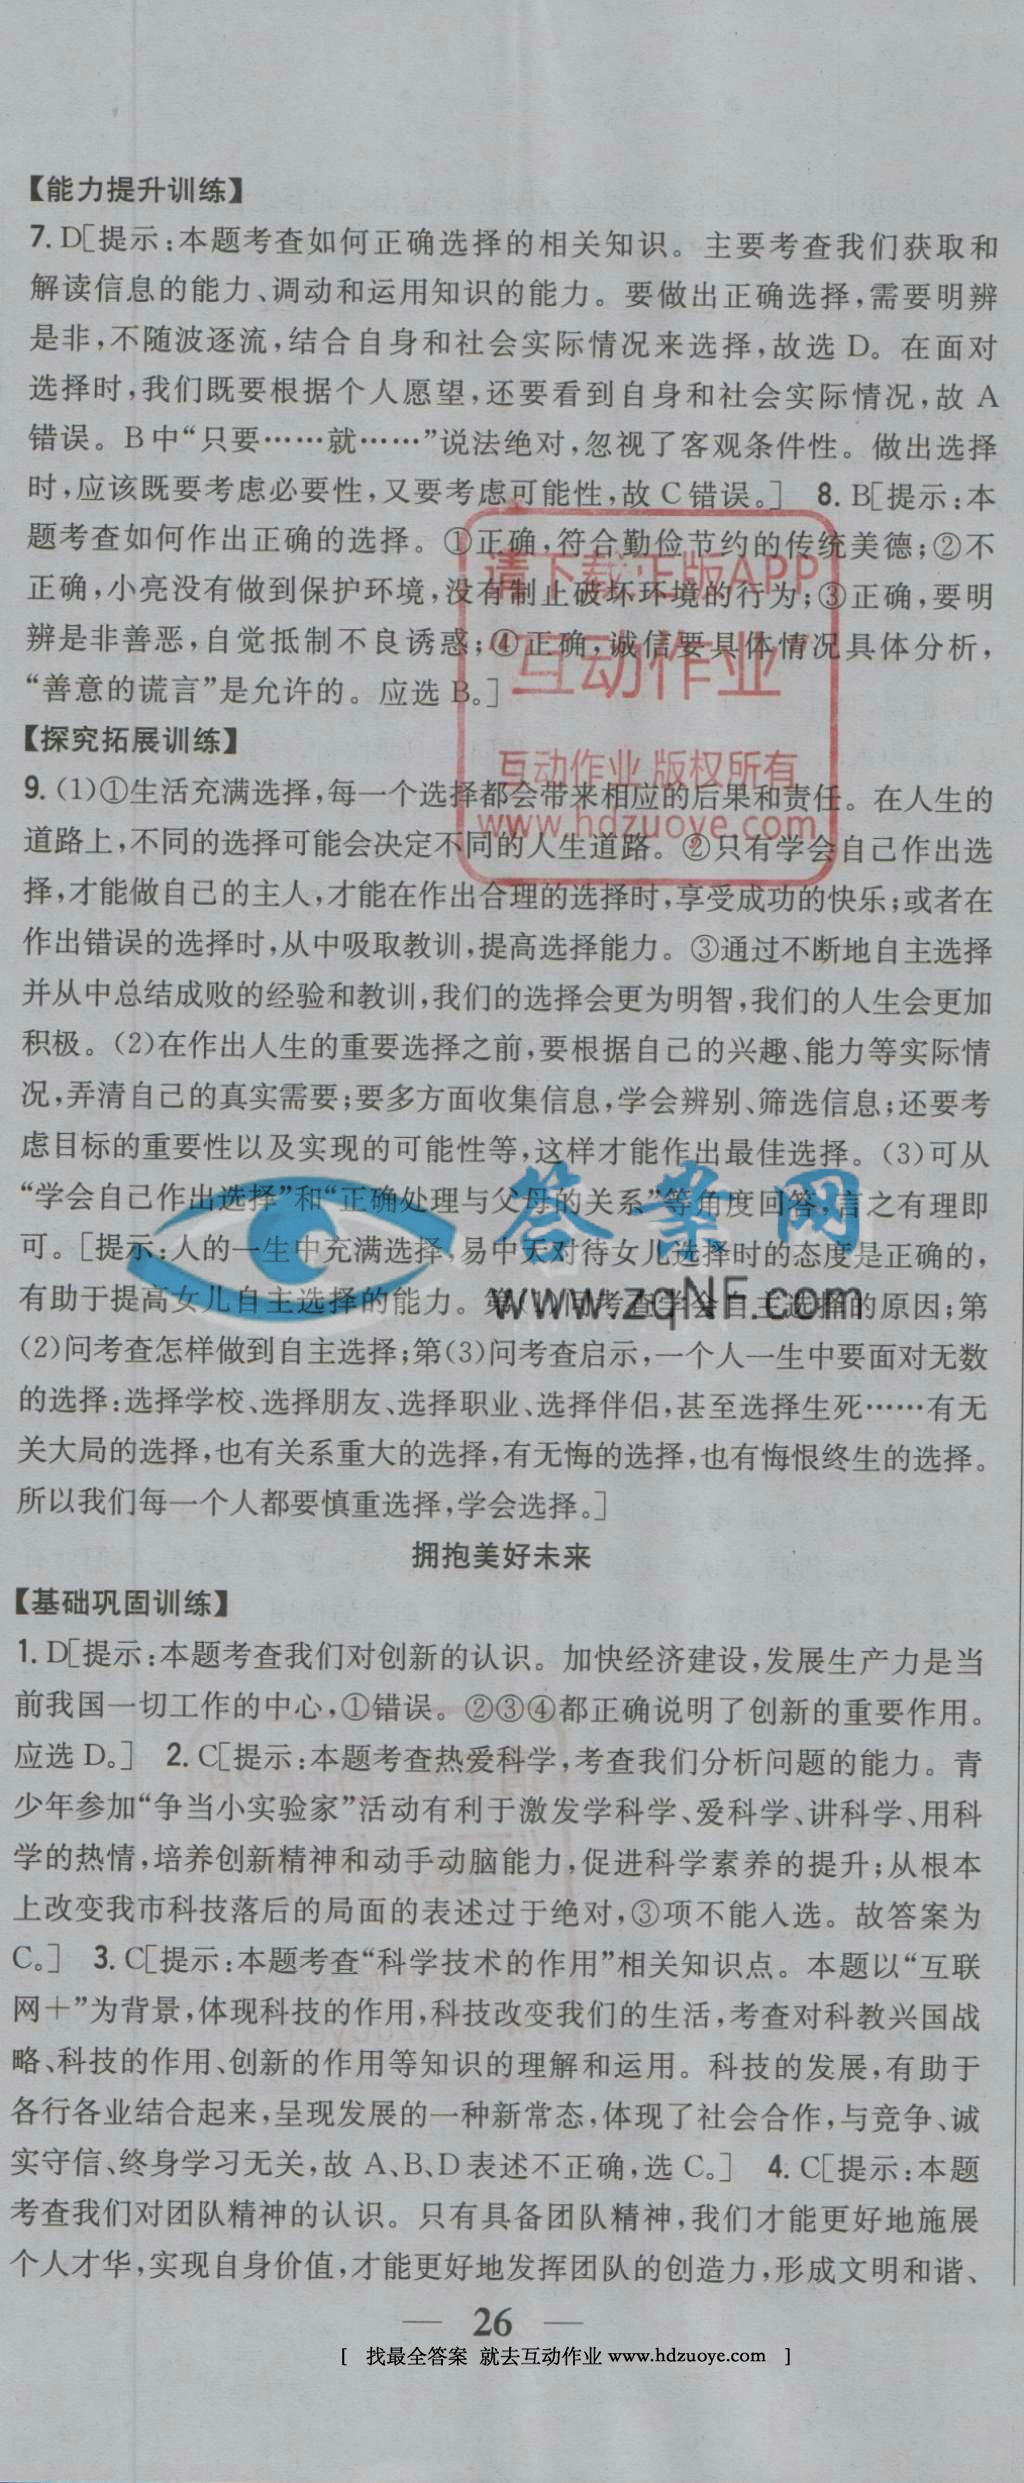 【能力提升训练】
7. D[提示:本题考查如何正确选择的相关知识。主要考查我们获取和
解读信息的能力、调动和运用知识的能力。要做出正确选择,需要明辨
是非,不随波逐流,结合自身和社会实际情况来选择,故选 D。在面对
选择时,我们既要根据个人愿望,还要看到自身和社会实际情况,故 A
错误。B中“只要……就……”说法绝对,忽视了客观条件性。做出选择
时,应该既要考虑必要性,又要考虑可能性,故 C 错误。] 8. B[提示:本
题考查如何作出正确的选择。①正确,符合勤俭节约的传统美德;②不
正确,小亮没有做到保护环境,没有制止破坏环境的行为;③正确,要明
辨是非善恶,自觉抵制不良诱惑;④正确,诚信要具体情况具体分析,
“善意的谎言”是允许的。应选 B。]
请下载正版APP
互动作业
互动作业 版权所有
www.hdzuoye.com
【探究拓展训练】
9. (1)①生活充满选择,每一个选择都会带来相应的后果和责任。在人生的
道路上,不同的选择可能会决定不同的人生道路。②只有学会自己作出选
择,才能做自己的主人,才能在作出合理的选择时,享受成功的快乐;或者在
作出错误的选择时,从中吸取教训,提高选择能力。③通过不断地自主选择
并从中总结成败的经验和教训,我们的选择会更为明智,我们的人生会更加
积极。(2)在作出人生的重要选择之前,要根据自己的兴趣、能力等实际情
况,弄清自己的真实需要;要多方面收集信息,学会辨别、筛选信息;还要考
虑目标的重要性以及实现的可能性等,这样才能作出最佳选择。(3)可从
“学会自己作出选择”和“正确处理与父母的关系”等角度回答,言之有理即
可。[提示:人的一生中充满选择,易中天对待女儿选择时的态度是正确的,
有助于提高女儿自主选择的能力。第(1)问考查学会自主选择的原因;第
(2)问考查怎样做到自主选择;第(3)问考查启示,一个人一生中要面对无数
的选择:选择学校、选择朋友、选择职业、选择伴侣,甚至选择生死……有无
关大局的选择,也有关系重大的选择,有无悔的选择,也有悔恨终生的选择。
所以我们每一个人都要慎重选择,学会选择。]
答案网
www.zqNF.com
拥抱美好未来
【基础巩固训练】
1. D[提示:本题考查我们对创新的认识。加快经济建设,发展生产力是当
前我国一切工作的中心,①错误。②③④都正确说明了创新的重要作用。
应选 D。] 2. C[提示:本题考查热爱科学,考查我们分析问题的能力。青
少年参加“争当小实验家”活动有利于激发学科学、爱科学、讲科学、用科
学的热情,培养创新精神和动手动脑能力,促进科学素养的提升;从根本
上改变我市科技落后的局面的表述过于绝对,③项不能入选。故答案为
C。] 3. C[提示:本题考查“科学技术的作用”相关知识点。本题以“互联
网+”为背景,体现科技的作用,科技改变我们的生活,考查对科教兴国战
略、科技的作用、创新的作用等知识的理解和运用。科技的发展,有助于
各行各业结合起来,呈现发展的一种新常态,体现了社会合作,与竞争、诚
实守信、终身学习无关,故 A、B、D 表述不正确,选 C。] 4. C[提示:本题
考查我们对团队精神的认识。只有具备团队精神,我们才能更好地施展
个人才华,实现自身价值,才能更好地发挥团队的创造力,形成文明和谐、
— 26 —
[ 找最全答案 就去互动作业 www.hdzuoye.com ]